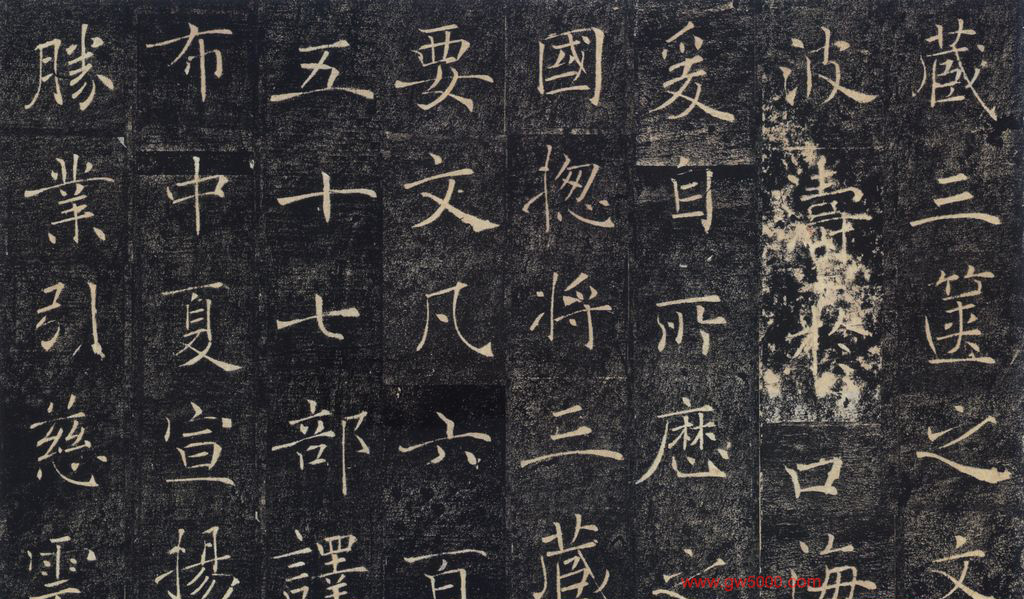 藏三篋之文
波濤於口海
爰自所歷之
國揔将三藏
要文凡六百
五十七部譯
布中夏宣揚
勝業引慈雲
www.gw5000.com